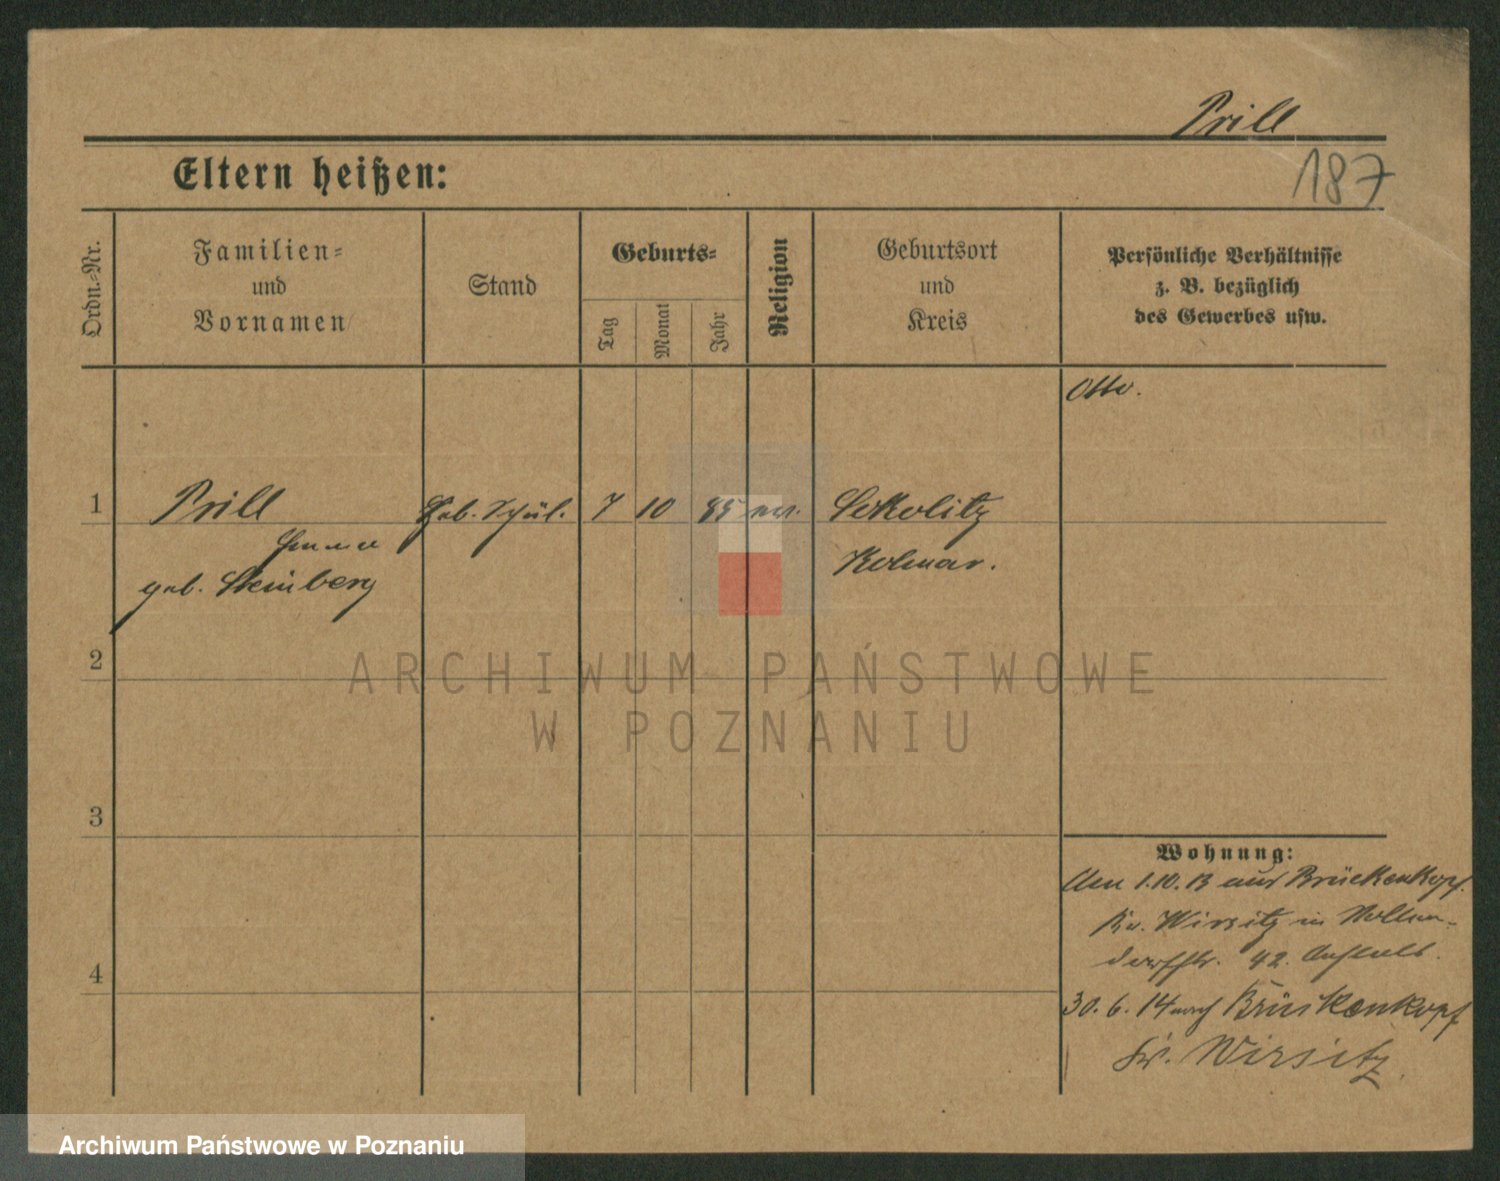 Prill
187
Eltern heißen:
Ordn.-Nr.
Familien-
und
Vornamen
Stand
Geburts-
Tag
Monat
Jahr
Religion
Geburtsort
und
Kreis
Persönliche Verhältnisse
z. B. bezüglich
des Gewerbes usw.
Otto.
1
Prill
7
10
85
ev.
Kolmar.
Emma
geb. Steinberg
2
3
4
Wohnung:
1.10.13 aus Brückenkopf.
Kr. Wirsitz in
42.
30.6.14 nach Brückenkopf
Kr. Wirsitz.
ARCHIWUM PAŃSTWOWE
W POZNANIU
Archiwum Państwowe w Poznaniu